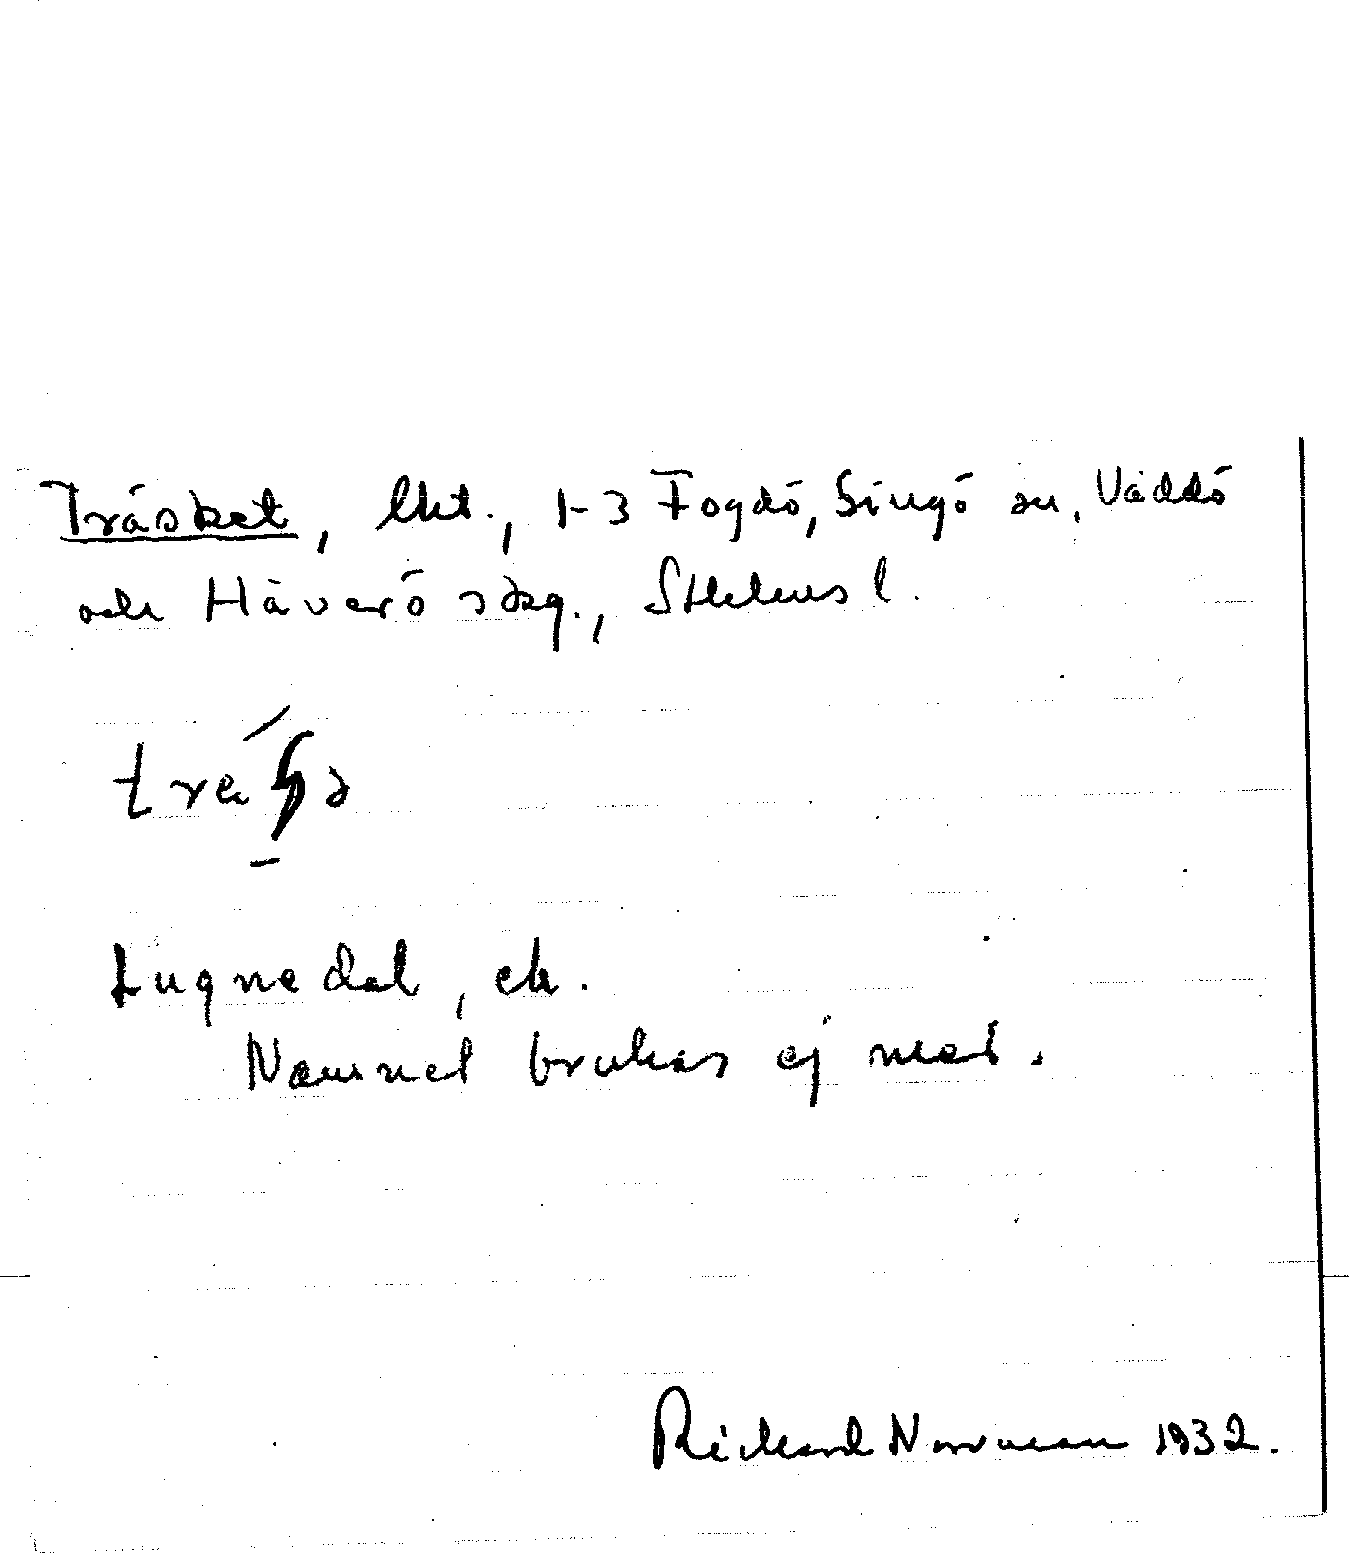 Träsket, lht., 1-3 Fogdö, Singö sn, Väddö
och Häverö skg., Sthlms l.
Lugnedal, eh.
Namnet brukas ej mer.
Rickard Norrman 1932.